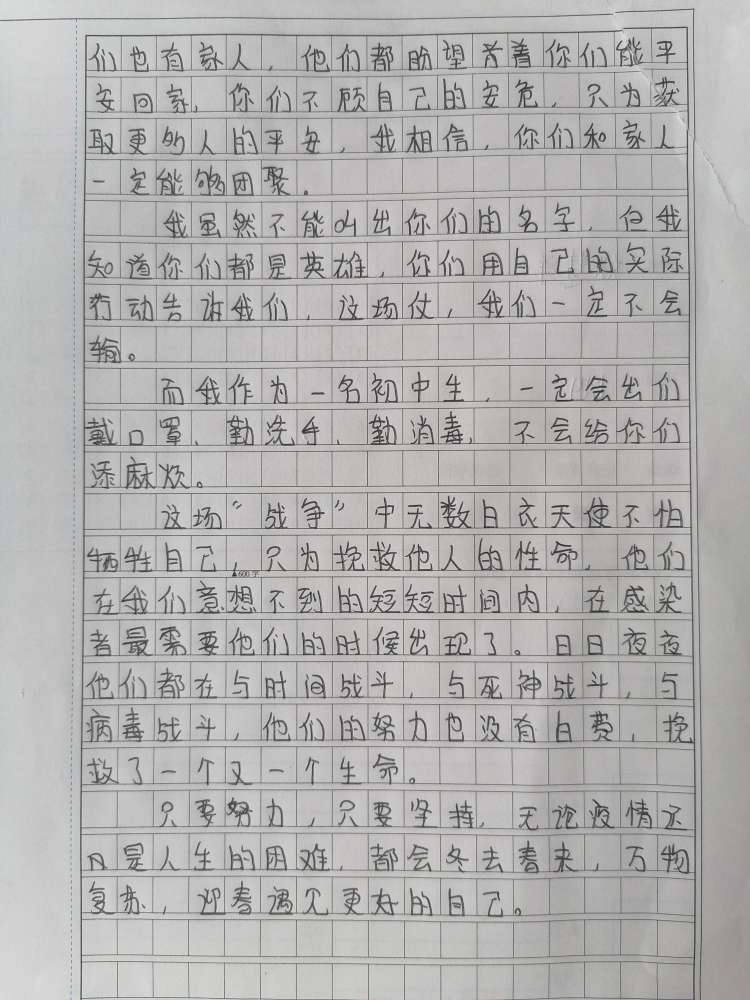 们也有家人，他们都盼望着着你们能平
安回家，你们不顾自己的安危，只为获
取更多人的平安，我相信，你们和家人
一定能够团聚。
我虽然不能叫出你们的名字，但我
知道你们都是英雄，你们用自己的实际
行动告诉我们，这场仗，我们一定不会
输。
而我作为一名初中生，一定会出们
戴口罩、勤洗手、勤消毒，不会给你们
添麻烦。
这场“战争”中无数白衣天使不怕
牺牲自己，只为挽救他人的性命，他们
▲600字
在我们意想不到的短短时间内，在感染
者最需要他们的时候出现了。日日夜夜
他们都在与时间战斗，与死神战斗，与
病毒战斗，他们的努力也没有白费，挽
救了一个又一个生命。
只要努力，只要坚持，无论疫情还
是人生的困难，都会冬去春来，万物
复苏，迎春遇见更好的自己。